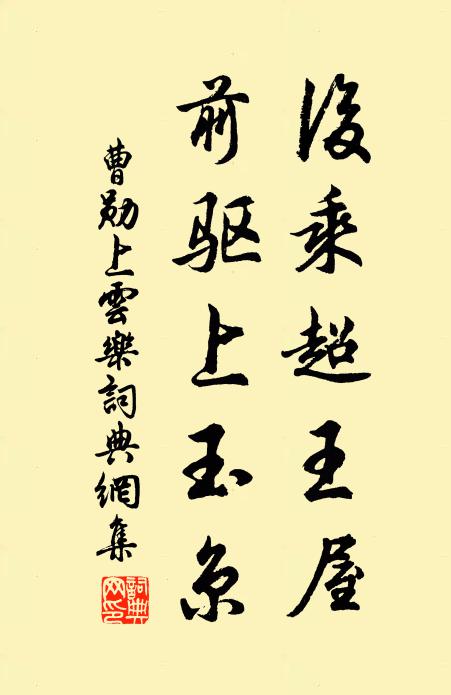 後乘超王屋
前驱上玉京
曹勛上雲樂詞典網集
詞典
网印